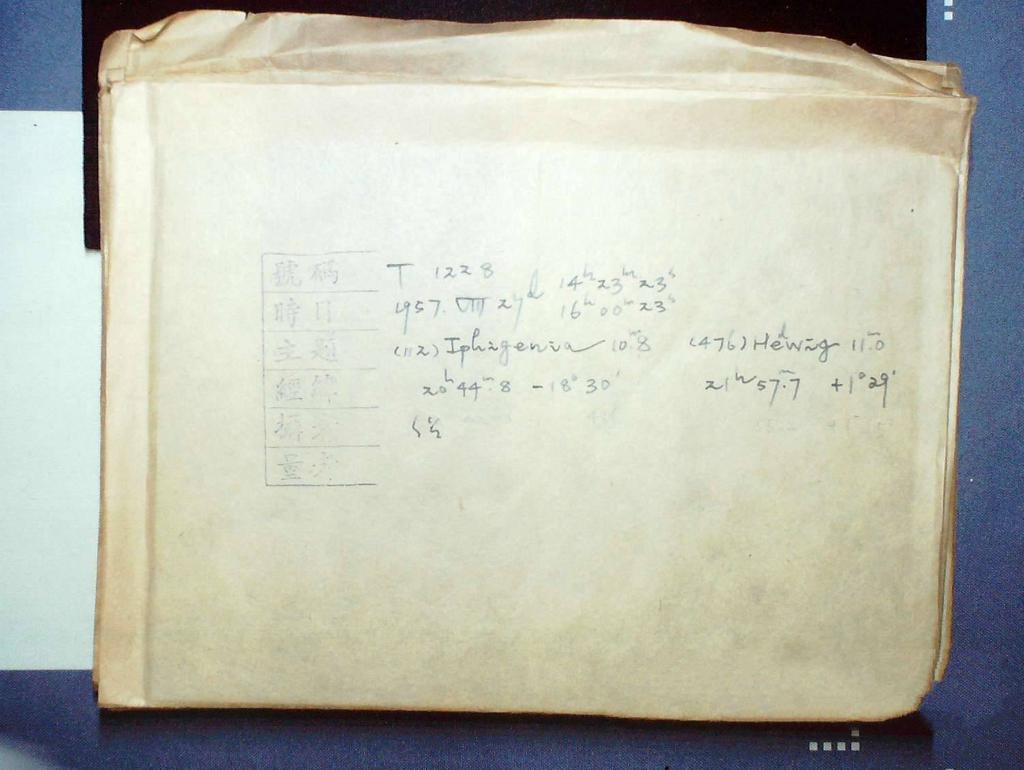 號碼 T 1228
時日 1957. VIII 27d 14h 23m 23s
16h 00m 23s
主題 (112) Iphigenia 10m.8 (476) Hedwig 11m.0
經緯 20h 44m.8 -18° 30′ 21h 57m.7 +1° 29′
攝
量